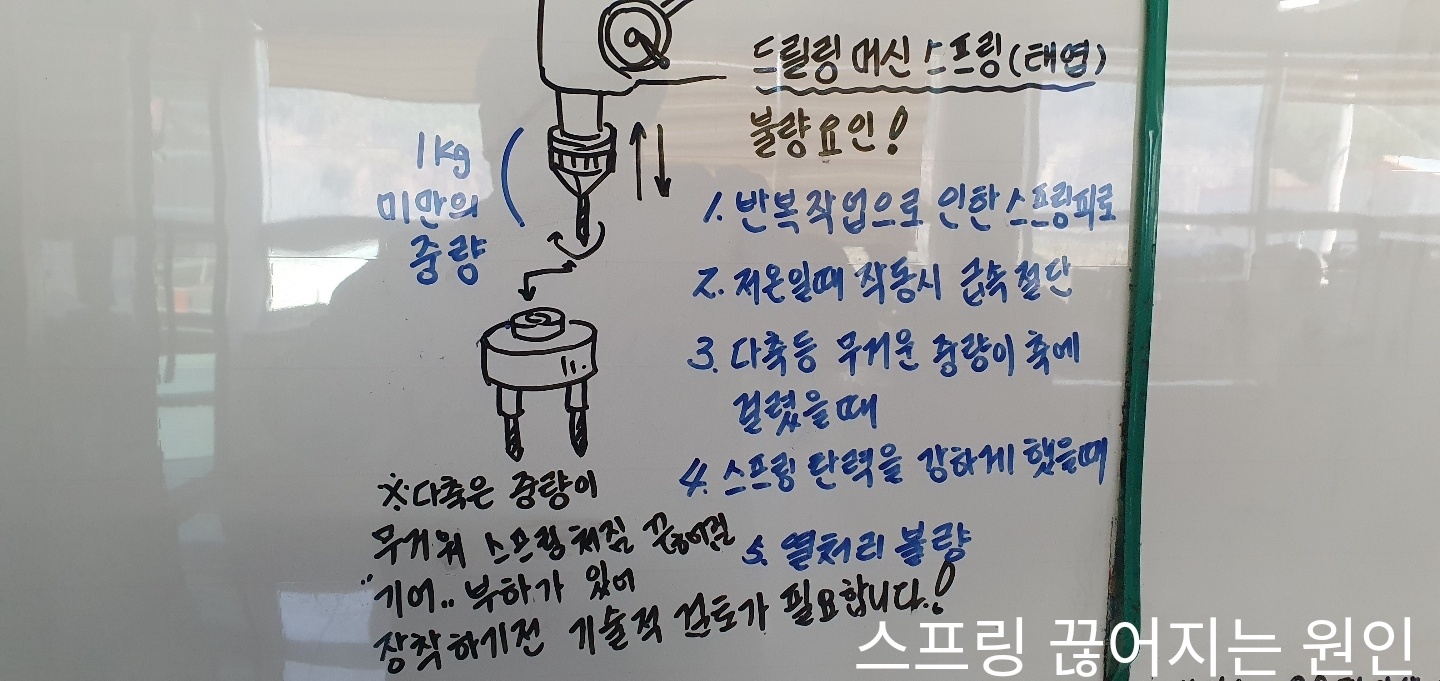 드릴링 머신 스프링(태엽)
불량요인!
1kg
미만의
중량
1. 반복작업으로 인한 스프링피로
2. 저온일때 작동시 급속 절단
3. 다축등 무거운 중량이 축에
걸렸을때
4. 스프링 탄력을 강하게 했을때
5. 열처리 불량
※다축은 중량이
무거워 스프링 처짐 끊어짐
"기어.. 부하가 있어
장착하기전 기술적 검토가 필요합니다.!
스프링 끊어지는 원인